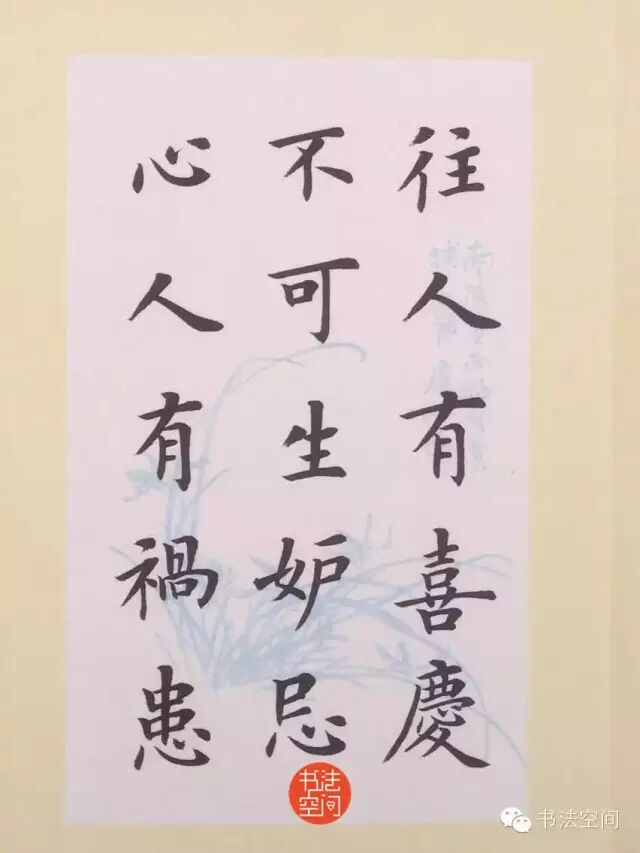 往人有喜慶
不可生妒忌
心人有禍患
书法空间
书法空间